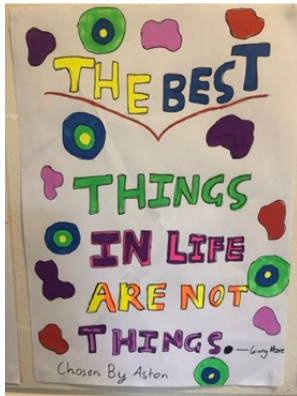 THE BEST
THINGS
IN LIFE
ARE NOT
THINGS.
Chosen By Aston